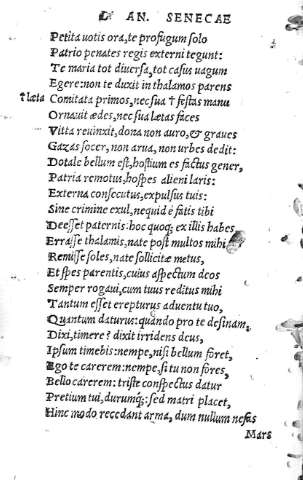 AN. SENECAE
Petita uotis ora, te profugum solo
Patrio penates regis externi tegunt:
Te maria tot diuersa, tot casus uagum
Egere: non te duxit in thalamos parens
† laeta Comitata primos, nec sua † festas manu
Ornauit ædes, nec sua lætas faces
Vitta reuinxit, dona non auro, & graues
Gazas socer, non arua, non urbes dedit:
Dotale bellum est, hostium es factus gener,
Patria remotus, hospes alieni laris:
Externa consecutus, expulsus tuis:
Sine crimine exul, nequid è fatis tibi
Deesset paternis: hoc quoq; ex illis habes,
Errasse thalamis, nate post multos mihi
Remisse soles, nate sollicitæ metus,
Et spes parentis, cuius aspectum deos
Semper rogaui, cum tuus reditus mihi
Tantum esset erepturus aduentu tuo,
Quantum daturus: quando pro te desinam,
Dixi, timere? dixit irridens deus,
Ipsum timebis: nempe, nisi bellum foret,
Ego te carerem: nempe, si tu non fores,
Bello carerem: triste conspectus datur
Pretium tui, durumq;: sed matri placet,
Hinc modo recedant arma, dum nullum nefas
Mars